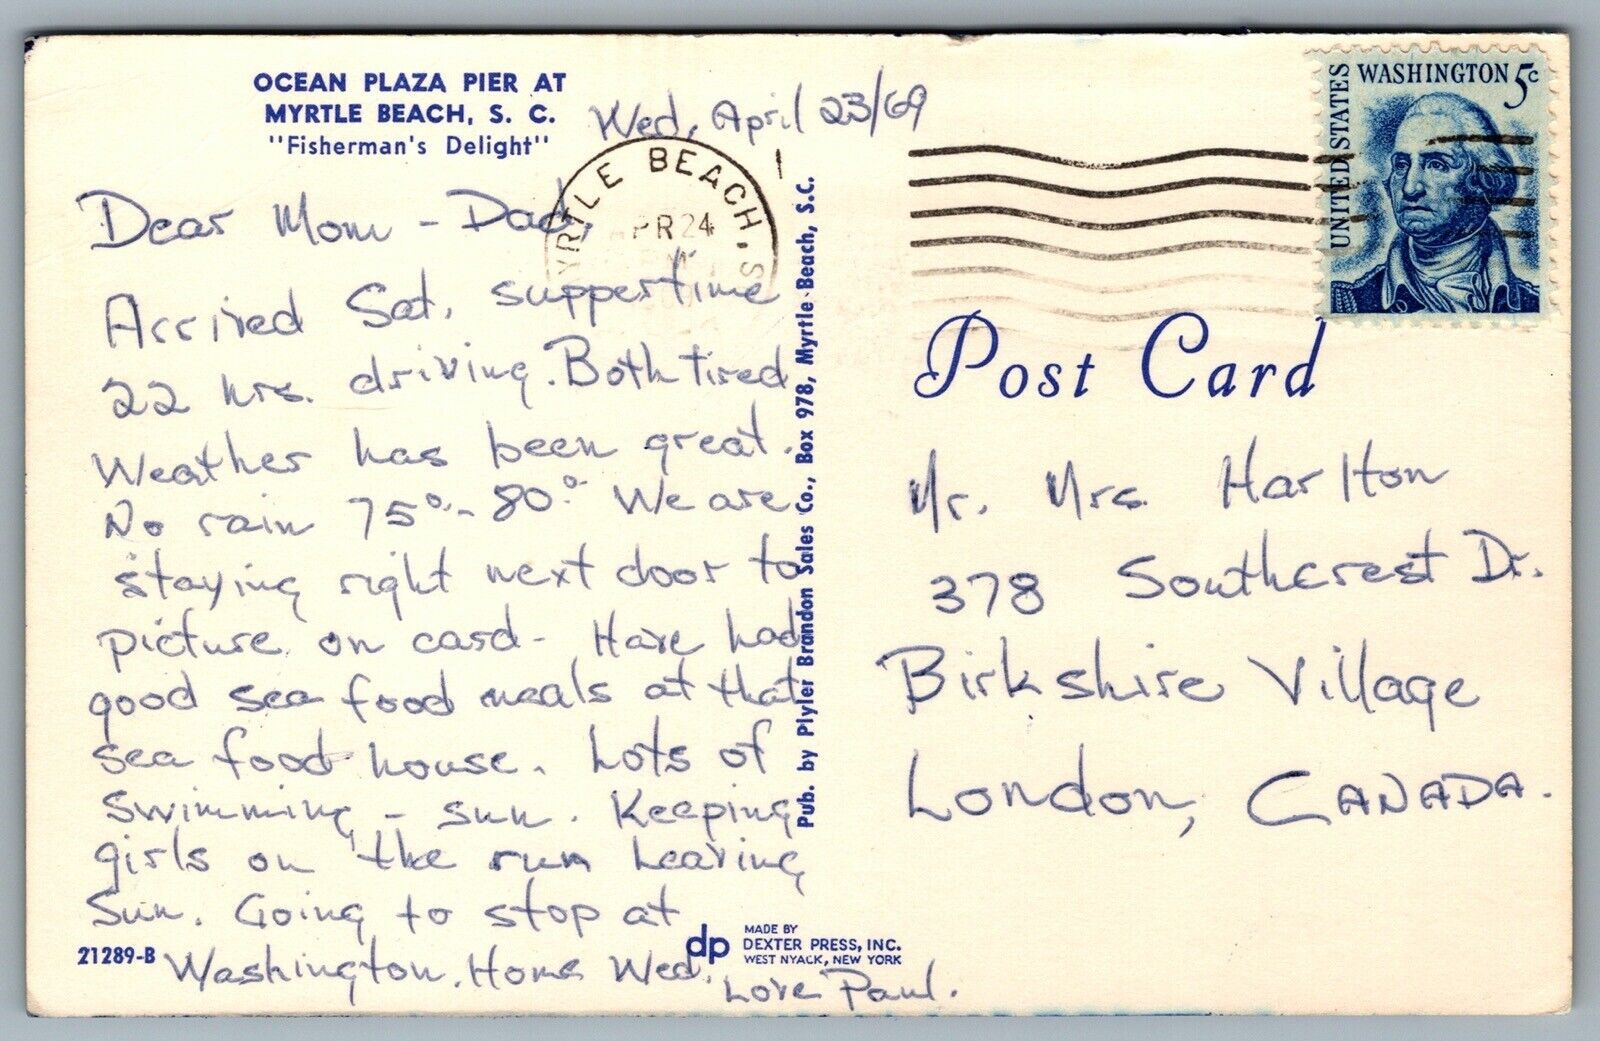 OCEAN PLAZA PIER AT
MYRTLE BEACH, S. C.
"Fisherman's Delight"
Wed, April 23/69
Dear Mom - Dad,
Arrived Sat. suppertime
22 hrs. driving. Both tired
Weather has been great.
No rain 75°-80° We are
staying right next door to
picture on card - Have had
good sea food meals at that
sea food house. Lots of
swimming - sun. Keeping
girls on the run Leaving
Sun. Going to stop at
Washington. Home Wed.
Love Paul.
21289-B
dp
MADE BY
DEXTER PRESS, INC.
WEST NYACK, NEW YORK
Pub. by Plyler Brandon Sales Co., Box 978, Myrtle Beach, S.C.
MYRTLE BEACH, S
APR 24
UNITED STATES
WASHINGTON 5c
Post Card
Mr. Mrs. Harlton
378 Southcrest Dr.
Birkshire Village
London, CANADA.